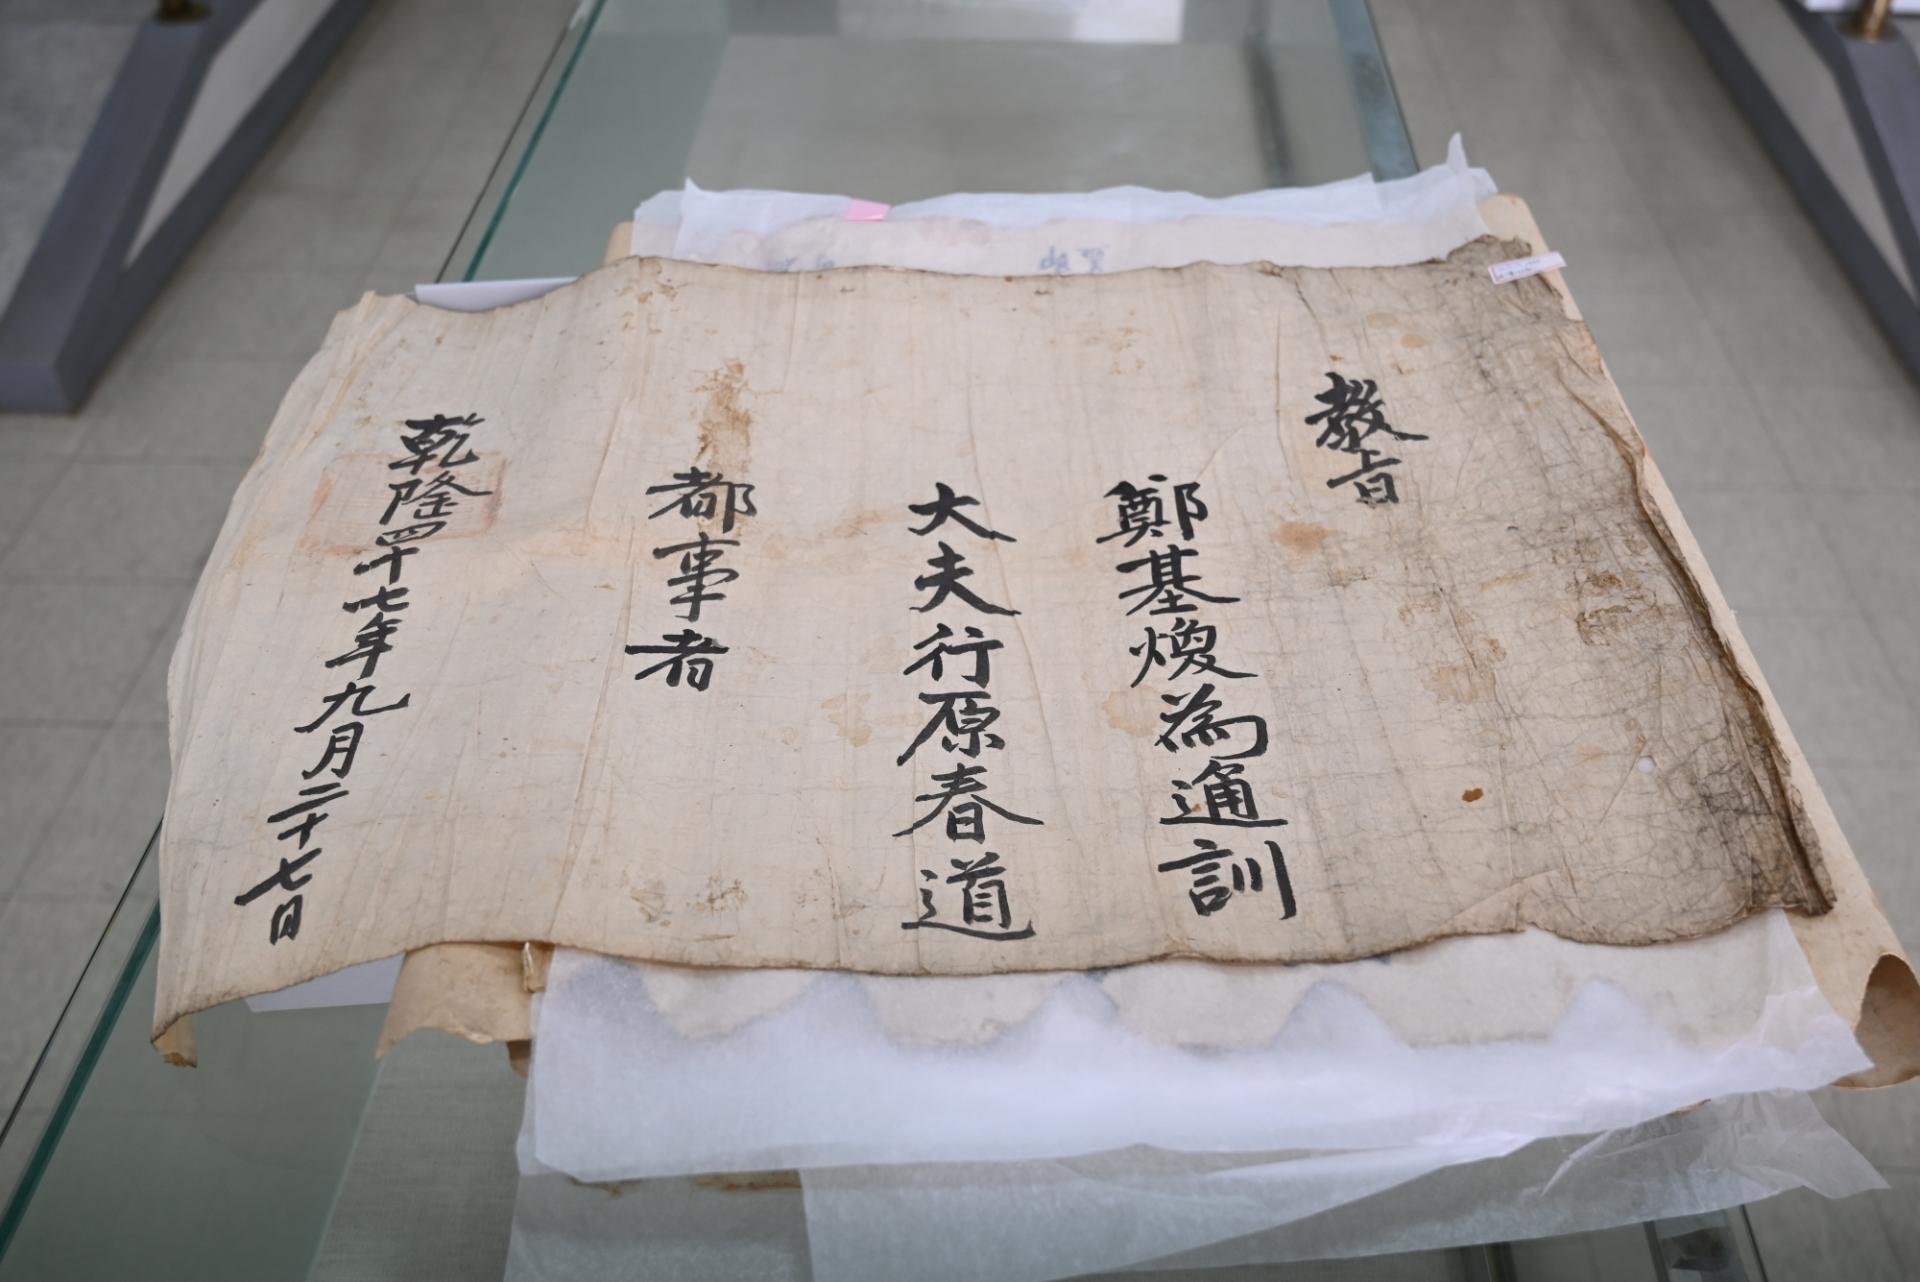 教旨
鄭基煥為通訓
大夫行原春道
都事者
乾隆四十七年九月二十七日